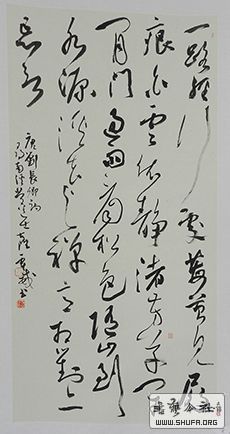 一路經行處莓苔見屐
痕白雲依靜渚芳草閉
閒門過雨看松色隨山到
水源溪花與禪意相對亦
忘言
唐劉長卿詩
WWW.SHUFA.ORG